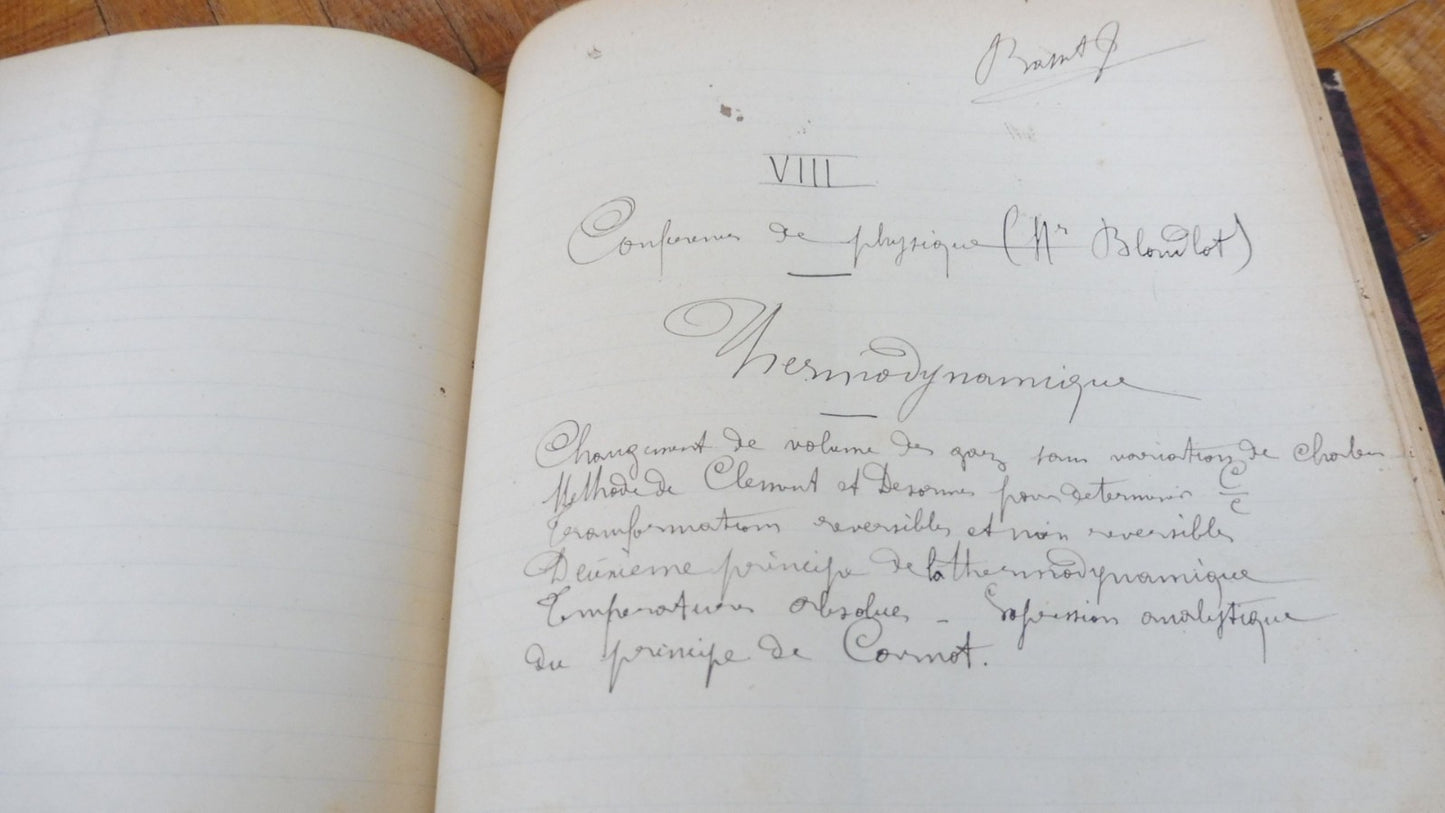 VIII
Conferences de physique (Mr Blondlot)
Thermodynamique
Changement de volume des gaz sans variation de chaleur
Methode de Clement et Desormes pour determiner C/c
Transformations reversibles et non reversibles
Deuxieme principe de la thermodynamique
Temperatures absolues - Expression analytique
du principe de Carnot.